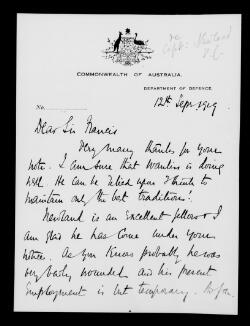 re
Capt. Newland
V.C.
COMMONWEALTH OF AUSTRALIA.
DEPARTMENT OF DEFENCE.
No.
12th Sepr 1919
Dear Sir Francis
Very many thanks for your
note. I am sure that Wanliss is doing
well. He can be relied upon I think to
maintain only the best traditions.
Newland is an excellent fellow & I
am glad he has come under your
notice. As you know probably he was
very badly wounded and his present
employment is but temporary.